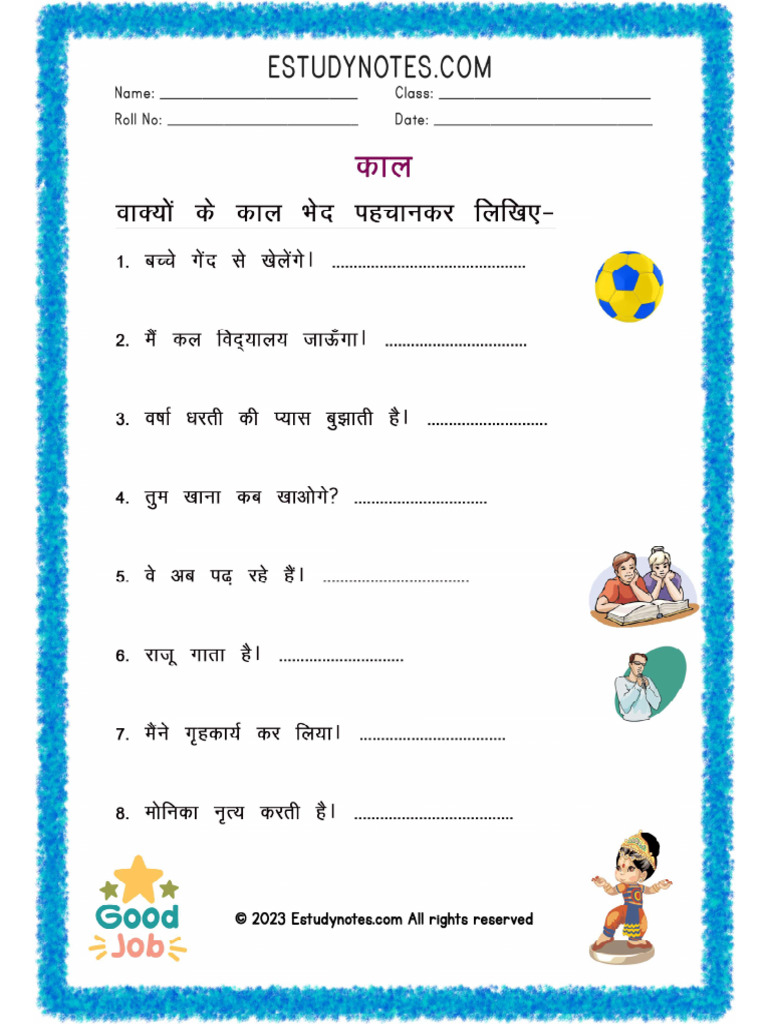 ESTUDYNOTES.COM
Name: ______________________ Class: ______________________
Roll No: ______________________ Date: ______________________
काल
वाक्यों के काल भेद पहचानकर लिखिए-
1. बच्चे गेंद से खेलेंगे। .............................................
2. मैं कल विद्यालय जाऊँगा। .................................
3. वर्षा धरती की प्यास बुझाती है। ............................
4. तुम खाना कब खाओगे? ...............................
5. वे अब पढ़ रहे हैं। ..................................
6. राजू गाता है। .............................
7. मैंने गृहकार्य कर लिया। ..................................
8. मोनिका नृत्य करती है। .....................................
Good
Job
© 2023 Estudynotes.com All rights reserved